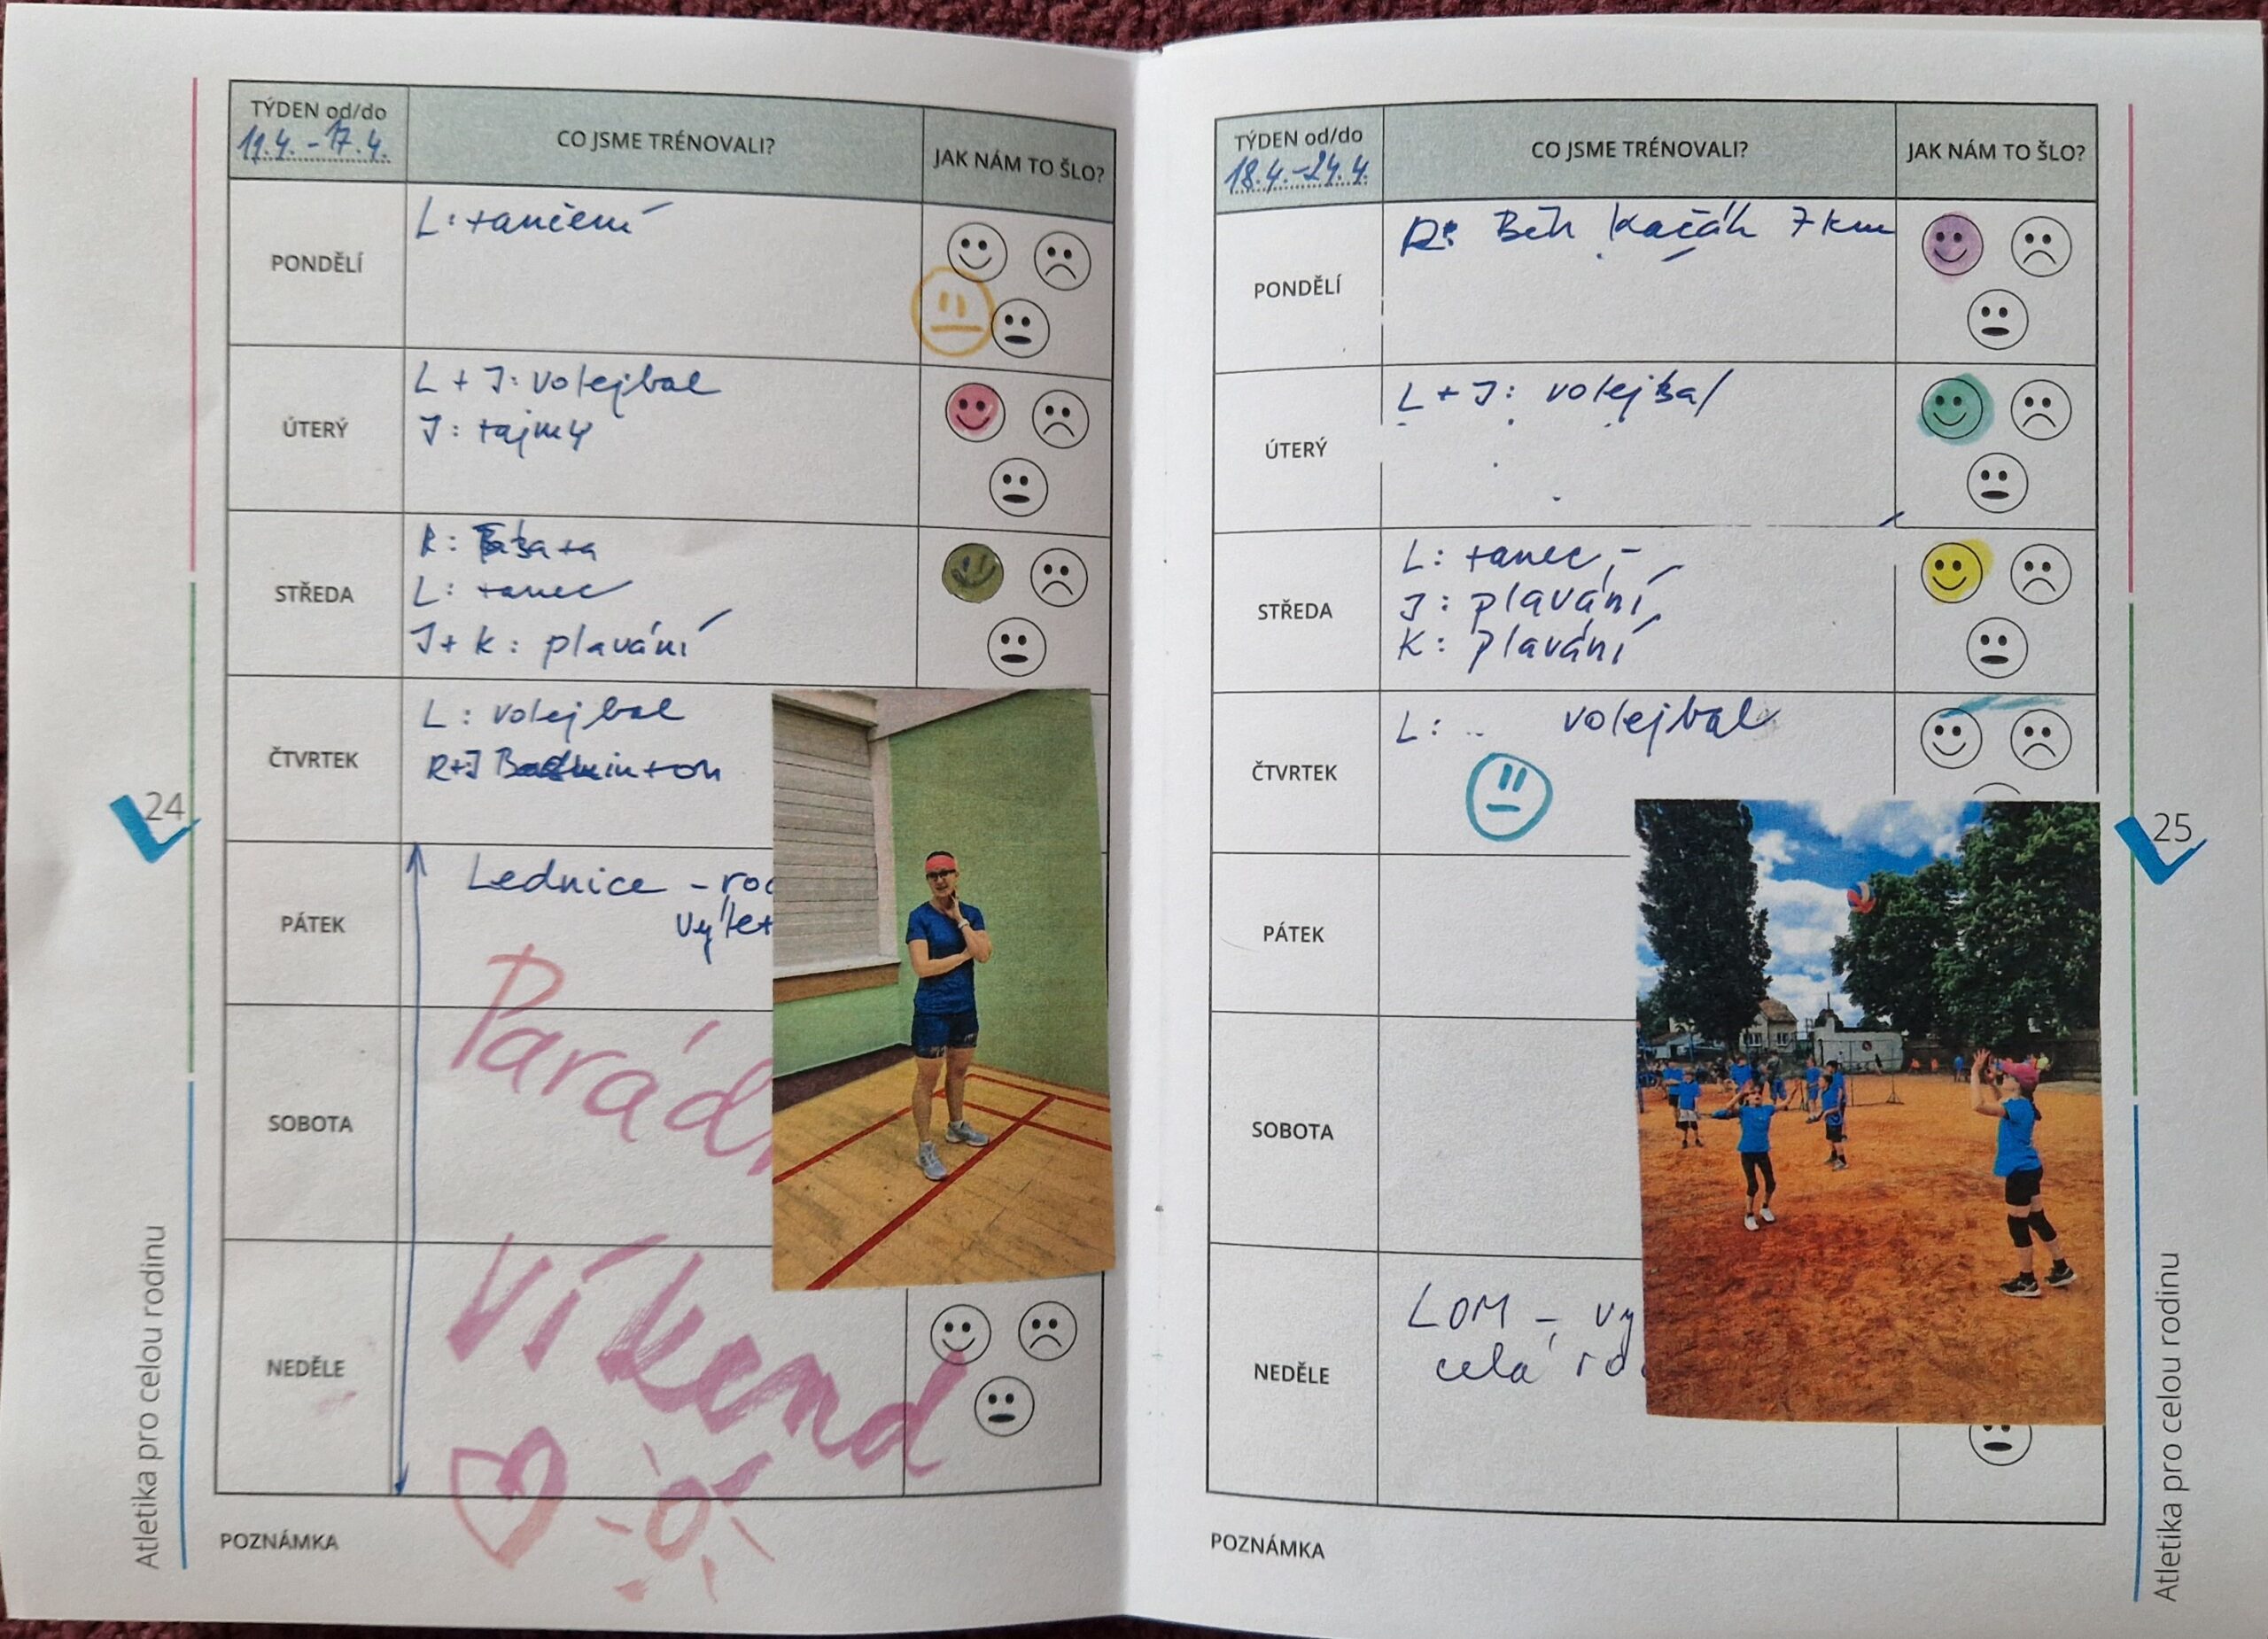 TÝDEN od/do
11.4. - 17.4.
CO JSME TRÉNOVALI?
JAK NÁM TO ŠLO?
PONDĚLÍ
L: tančení
ÚTERÝ
L + J: volejbal
J: tajmy
STŘEDA
R:
L: tanec
J + K: plavání
ČTVRTEK
L: volejbal
R+J Badminton
PÁTEK
Lednice -
SOBOTA
NEDĚLE
Víkend
POZNÁMKA
24
Atletika pro celou rodinu
TÝDEN od/do
18.4. - 24.4.
CO JSME TRÉNOVALI?
JAK NÁM TO ŠLO?
PONDĚLÍ
R: Běh Kačák 7 km
ÚTERÝ
L + J: volejbal
STŘEDA
L: tanec, -
J: plavání,
K: plavání
ČTVRTEK
L: .. volejbal
PÁTEK
SOBOTA
NEDĚLE
LOM -
celá
POZNÁMKA
25
Atletika pro celou rodinu